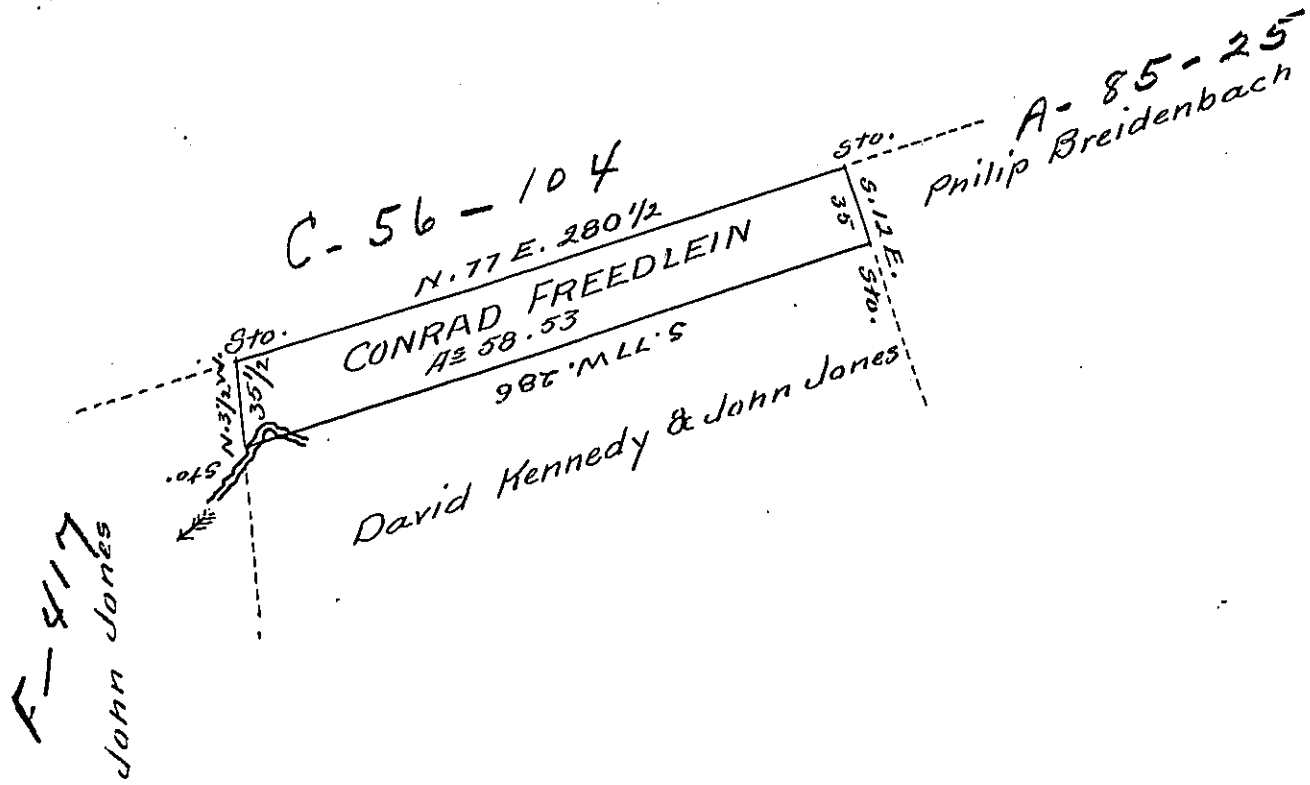 A- 85-25
Philip Breidenbach
C-56-104
Sto.
N. 77 E. 280 1/2
Sto.
S. 12 E.
35
CONRAD FREEDLEIN
As 58.53
Sto.
N. 3 1/2 W.
35 1/2
S. 77 W. 286
Sto.
David Kennedy & John Jones
F-417
John Jones